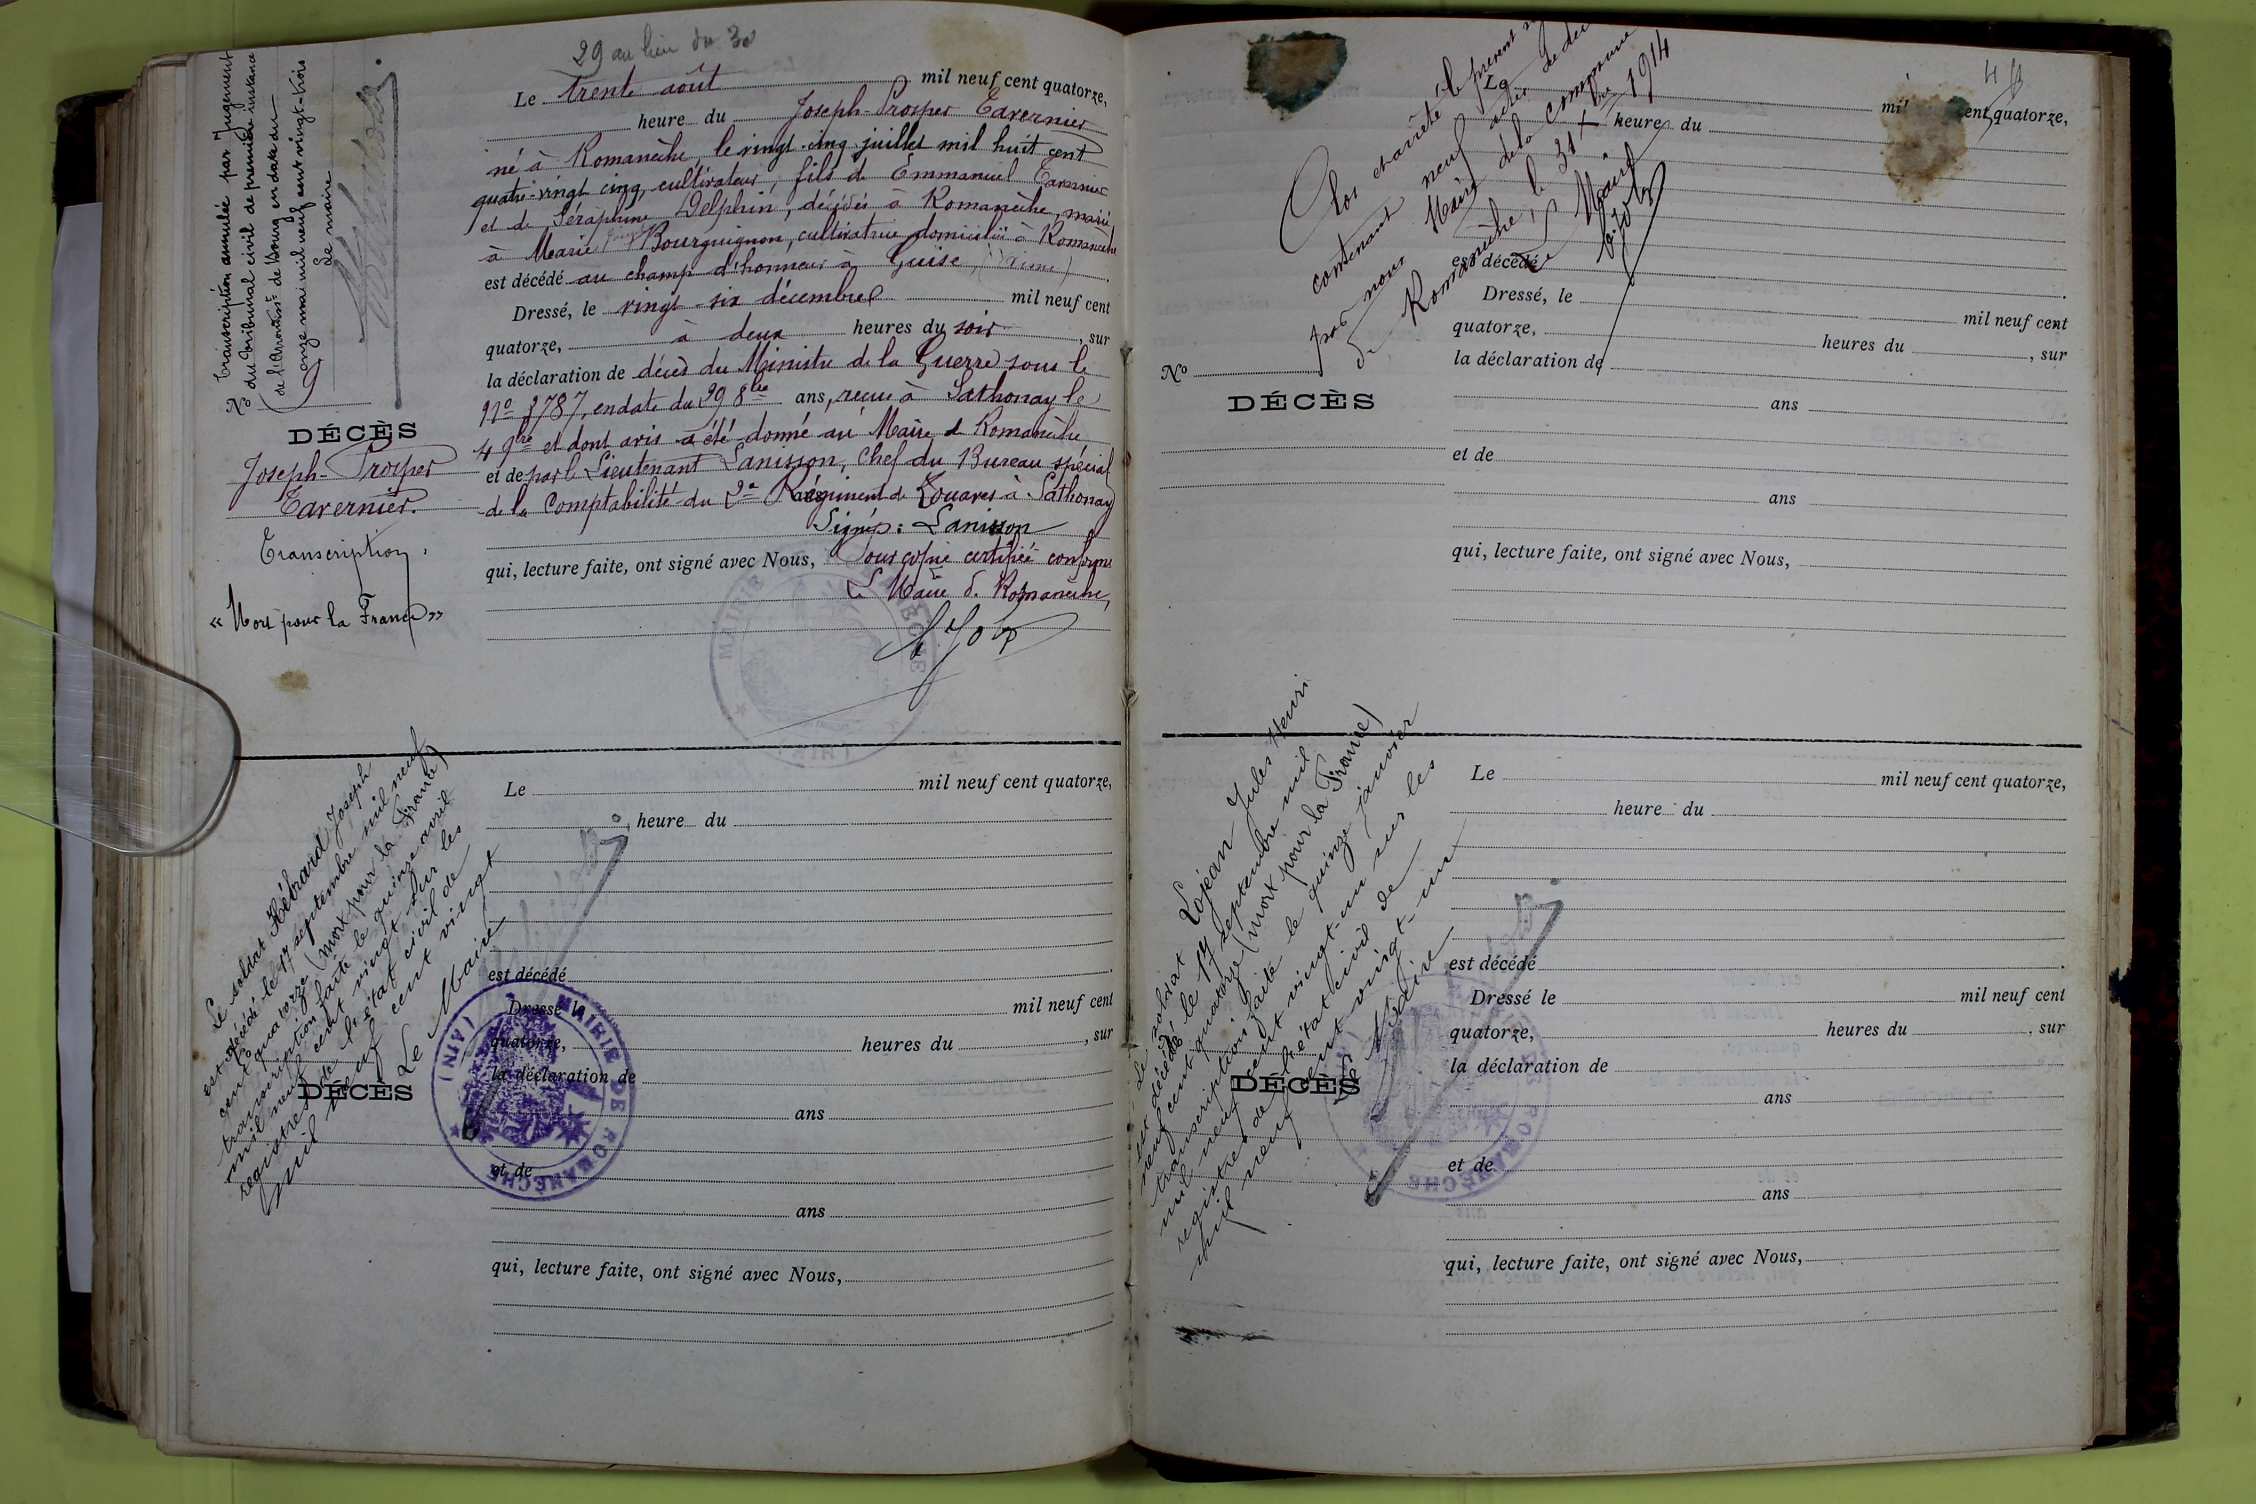 29 au lieu du 30
Le trente août mil neuf cent quatorze,
heure du Joseph-Prosper Tavernier
né à Romanèche, le vingt-cinq juillet mil huit cent
quatre-vingt cinq, cultivateur, fils de Emmanuel Tavernier
et de Séraphine Delphin, décédés à Romanèche, marié
à Marie Bourguignon, cultivatrice domiciliée à Romanèche
est décédé au champ d'honneur à Guise, (Aisne)
Dressé, le vingt-six décembre mil neuf cent
quatorze, à deux heures du soir, sur
la déclaration de décès du Ministre de la Guerre sous le
No 3787, en date du 29 8bre ans, reçue à Sathonay le
4 9bre et dont avis a été donné au Maire de Romanèche
et de par le Lieutenant Lanisson, chef du Bureau spécial
de la Comptabilité du 2e Régiment de Zouaves à Sathonay
Signé: Lanisson
qui, lecture faite, ont signé avec Nous, Pour copie certifiée conforme
Le Maire de Romanèche,
No
Transcription annulée par Jugement
du Tribunal civil de première instance
de l'Arrondisst de Bourg en date du
onze mai mil neuf cent vingt-trois
Le maire
DÉCÈS
Joseph-Prosper
Tavernier.
Transcription.
« Mort pour la France »
Le soldat Hébrard Joseph
est décédé le 17 septembre mil neuf
cent quatorze (mort pour la France)
transcription faite le quinze avril
mil neuf cent vingt sur les
registres de l'état civil de
mil neuf cent vingt
Le Maire
DÉCÈS
Le mil neuf cent quatorze,
heure du
est décédé
Dressé le mil neuf cent
quatorze, heures du , sur
la déclaration de
ans
et de
ans
qui, lecture faite, ont signé avec Nous,
MAIRIE DE ROMANÈCHE (AIN)
Le mil cent quatorze,
heure du
est décédé
Dressé, le mil neuf cent
quatorze, heures du , sur
la déclaration de
ans
et de
ans
qui, lecture faite, ont signé avec Nous,
No
DÉCÈS
Clos et arrêté le présent
contenant neuf actes de
par nous Maire de la commune
de Romanèche, le 31 Xbre 1914
Le Maire
Le soldat Lojean Jules Henri
est décédé le 17 septembre mil
neuf cent quatorze (mort pour la France)
transcription faite le quinze janvier
mil neuf cent vingt-un sur les
registres de l'état civil de
mil neuf cent vingt-un
Le Maire
DÉCÈS
Le mil neuf cent quatorze,
heure du
est décédé
Dressé le mil neuf cent
quatorze, heures du , sur
la déclaration de
ans
et de
ans
qui, lecture faite, ont signé avec Nous,